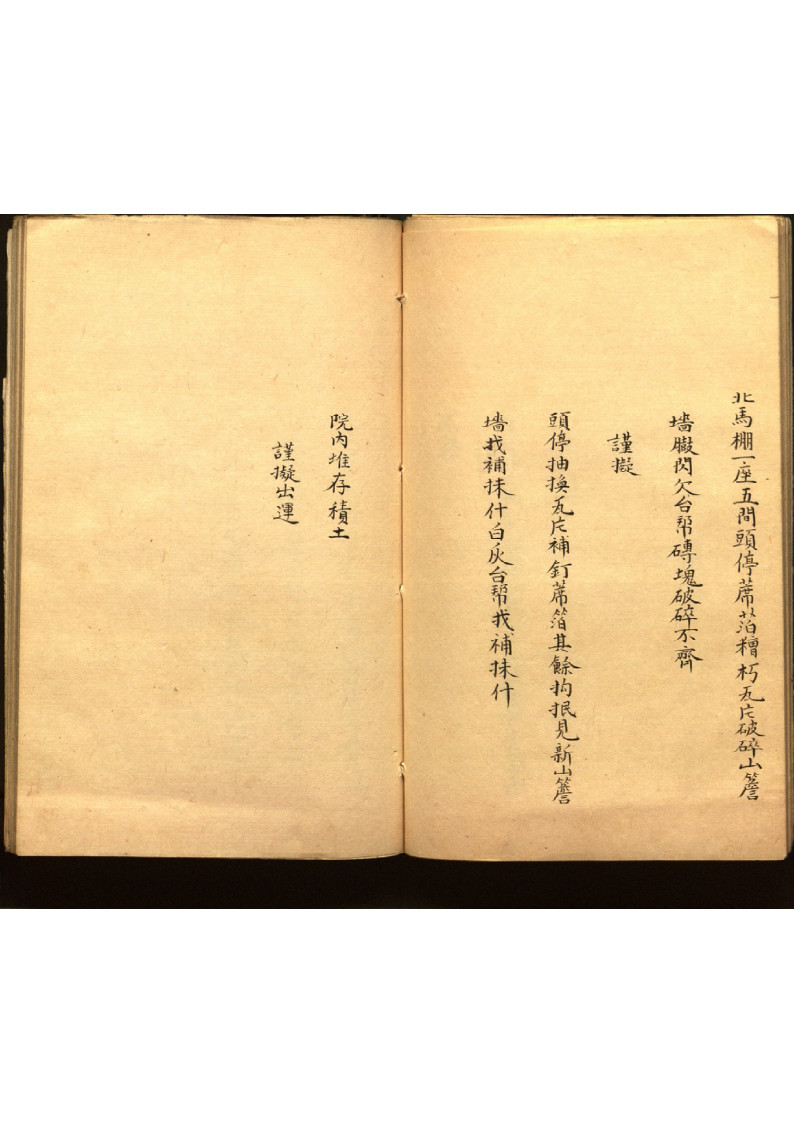 北馬棚一座五間頭停蓆箔糟朽瓦片破碎山簷
墻臌閃欠台幇磚塊破碎不齊
謹擬
頭停抽換瓦片補釘蓆箔其餘拘抿見新山簷
墻找補抹什白灰台幇找補抹什
院內堆存積土
謹擬出運